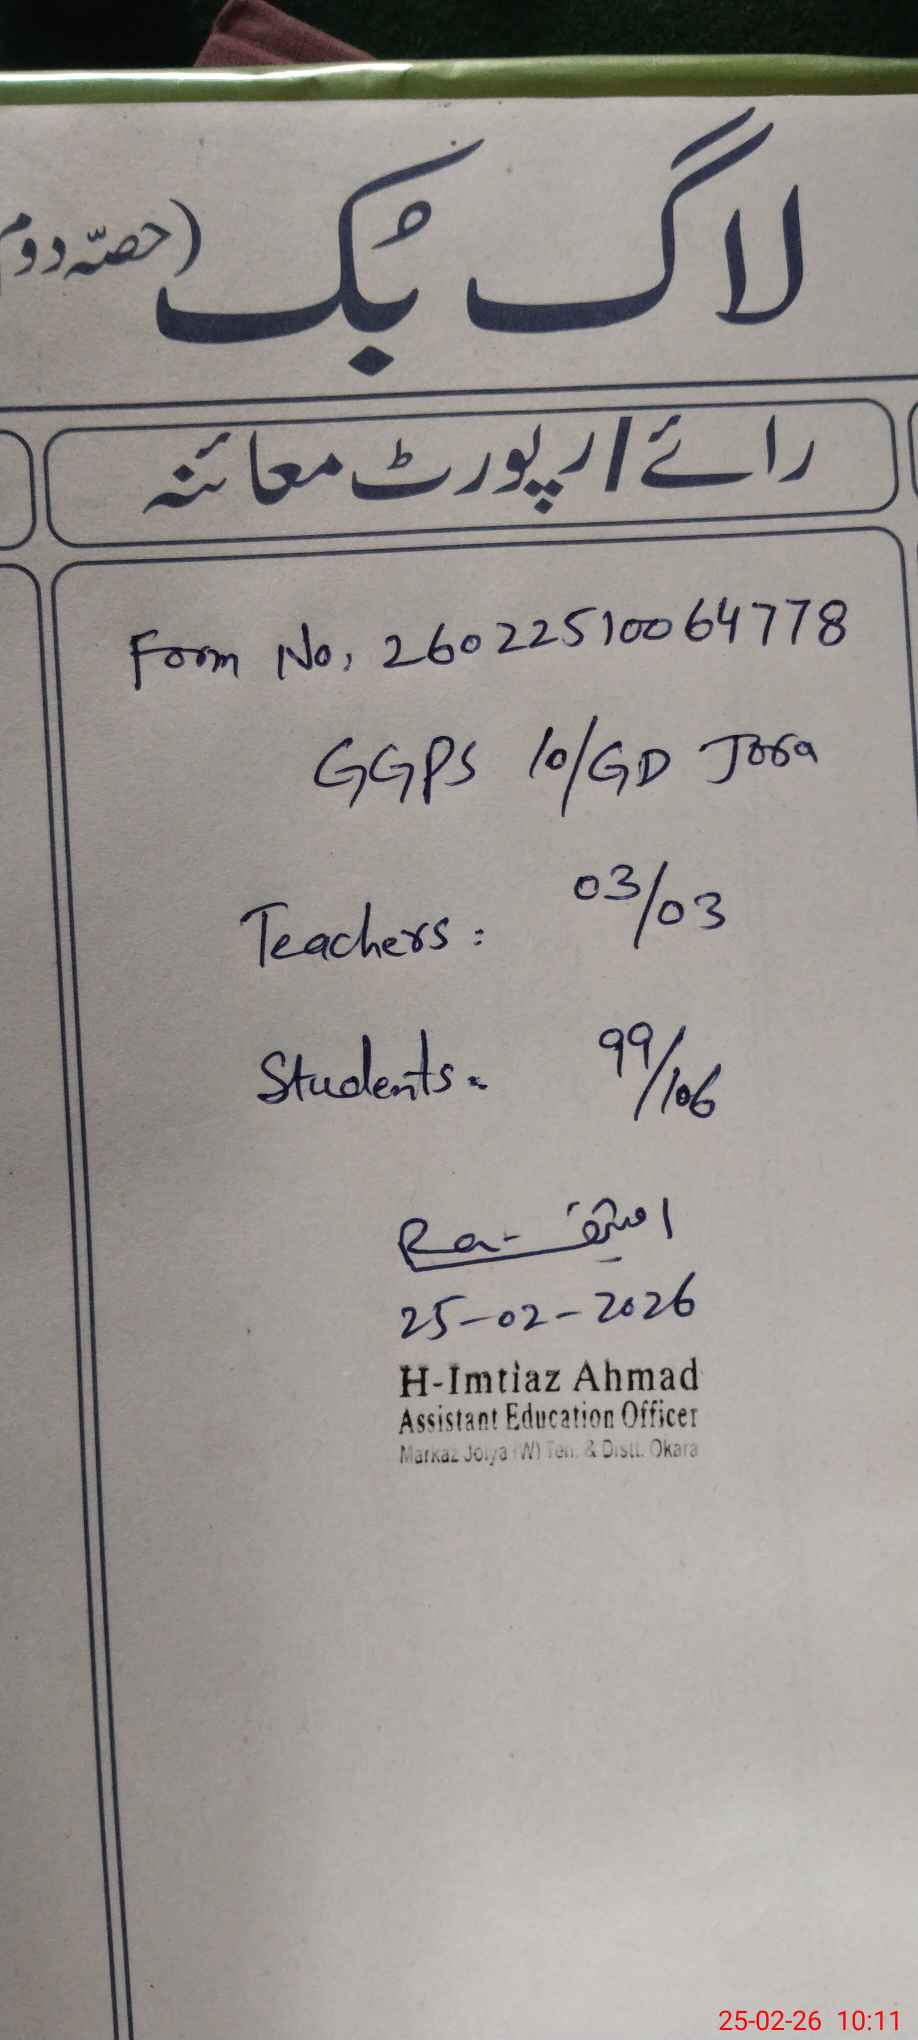 لاگ بُک (حصّہ دوم
رائے/رپورٹ معائنہ
Form No, 26022510064778
GGPS 10/GD Jora
Teachers : 03/03
Students = 99/106
25-02-2026
H-Imtiaz Ahmad
Assistant Education Officer
Markaz Joiya (W) Teh. & Distt. Okara
25-02-26 10:11